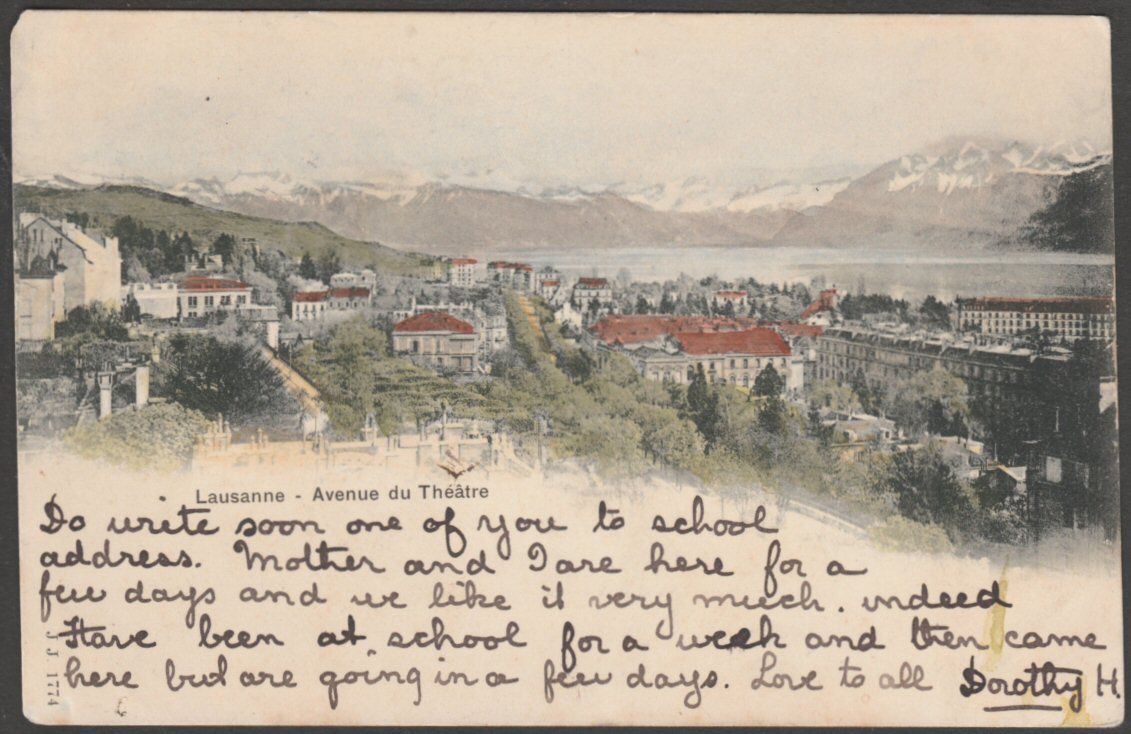 Lausanne - Avenue du Théâtre
Do write soon one of you to school
address. Mother and I are here for a
few days and we like it very much. indeed
Have been at school for a week and then came
here but are going in a few days. Love to all Dorothy H.
J. J. 1774